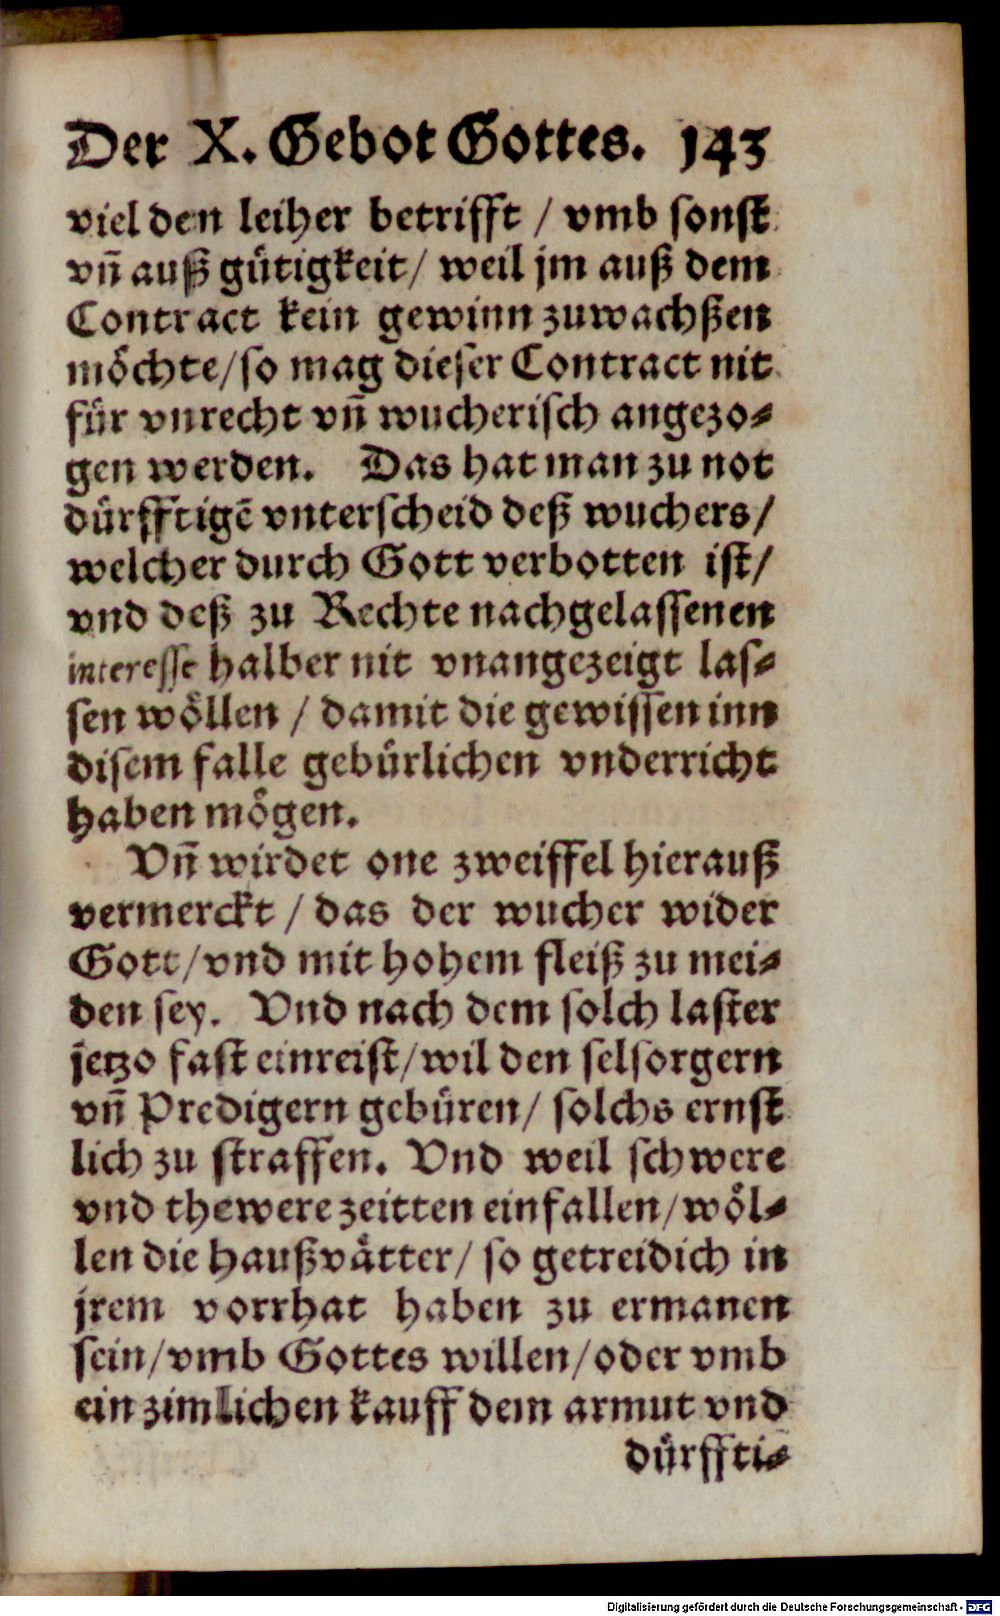 Der X. Gebot Gottes. 143
viel den leiher betrifft / vmb sonst
vñ auß gütigkeit / weil jm auß dem
Contract kein gewinn zuwachßen
möchte / so mag dieser Contract nit
für vnrecht vñ wucherisch angezo⸗
gen werden. Das hat man zu not
dürfftigẽ vnterscheid deß wuchers /
welcher durch Gott verbotten ist /
vnd deß zu Rechte nachgelassenen
interesse halber nit vnangezeigt las⸗
sen wöllen / damit die gewissen inn
disem falle gebürlichen vnderricht
haben mögen.
Vñ wirdet one zweiffel hierauß
vermerckt / das der wucher wider
Gott / vnd mit hohem fleiß zu mei⸗
den sey. Vnd nach dem solch laster
jetzo fast einreist / wil den selsorgern
vñ Predigern gebüren / solchs ernst
lich zu straffen. Vnd weil schwere
vnd thewere zeitten einfallen / wöl⸗
len die haußvätter / so getreidich in
jrem vorrhat haben zu ermanen
sein / vmb Gottes willen / oder vmb
ein zimlichen kauff dem armut vnd
dürffti⸗
Digitalisierung gefördert durch die Deutsche Forschungsgemeinschaft - DFG